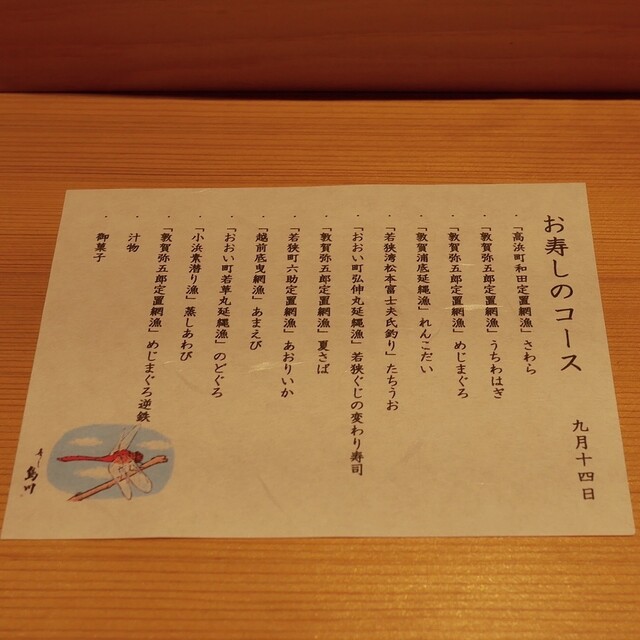 お寿しのコース
九月十四日
・「高浜町和田定置網漁」さわら
・「敦賀弥五郎定置網漁」うちわはぎ
・「敦賀弥五郎定置網漁」めじまぐろ
・「敦賀浦底延縄漁」れんこだい
・「若狭湾松本富士夫氏釣り」たちうお
・「おおい町弘伸丸延縄漁」若狭ぐじの変わり寿司
・「敦賀弥五郎定置網漁」夏さば
・「若狭町六助定置網漁」あおりいか
・「越前底曳網漁」あまえび
・「おおい町若華丸延縄漁」のどぐろ
・「小浜素潜り漁」蒸しあわび
・「敦賀弥五郎定置網漁」めじまぐろ逆鉄
・汁物
・御菓子